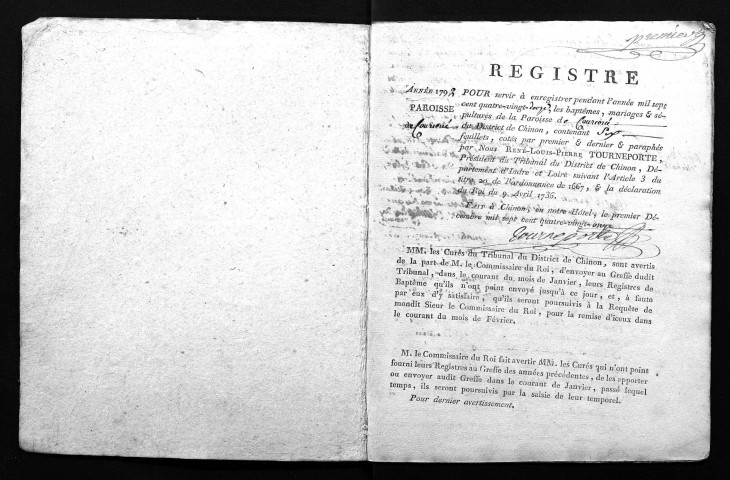 premier
REGISTRE
ANNÉE 1792 POUR servir à enregistrer pendant l'année mil sept
cent quatre-vingt-douze, les baptêmes, mariages & sé-
PAROISSE
pultures de la Paroisse de
du District de Chinon, contenant Six
feuillets, cotés par premier & dernier & paraphés
par Nous RENÉ-LOUIS-PIERRE TOURNEPORTE,
Président du Tribunal du District de Chinon, Dé-
partement d'Indre et Loire suivant l'Article 3 du
titre 20 de l'ordonnance de 1667, & la déclaration
du Roi du 9 Avril 1736.
FAIT à Chinon, en notre Hôtel, le premier Dé-
cembre mil sept cent quatre-vingt-onze
Tourneporte
MM. les Curés du Tribunal du District de Chinon, sont avertis
de la part de M. le Commissaire du Roi, d'envoyer au Greffe dudit
Tribunal, dans le courant du mois de Janvier, leurs Registres de
Baptême qu'ils n'ont point envoyé jusqu'à ce jour, et, à faute
par eux d'y satisfaire, qu'ils seront poursuivis à la Requête de
mondit Sieur le Commissaire du Roi, pour la remise d'iceux dans
le courant du mois de Février.
M. le Commissaire du Roi fait avertir MM. les Curés qui n'ont point
fourni leurs Registres au Greffe des années précédentes, de les apporter
ou envoyer audit Greffe dans le courant de Janvier, passé lequel
temps, ils seront poursuivis par la saisie de leur temporel.
Pour dernier avertissement.